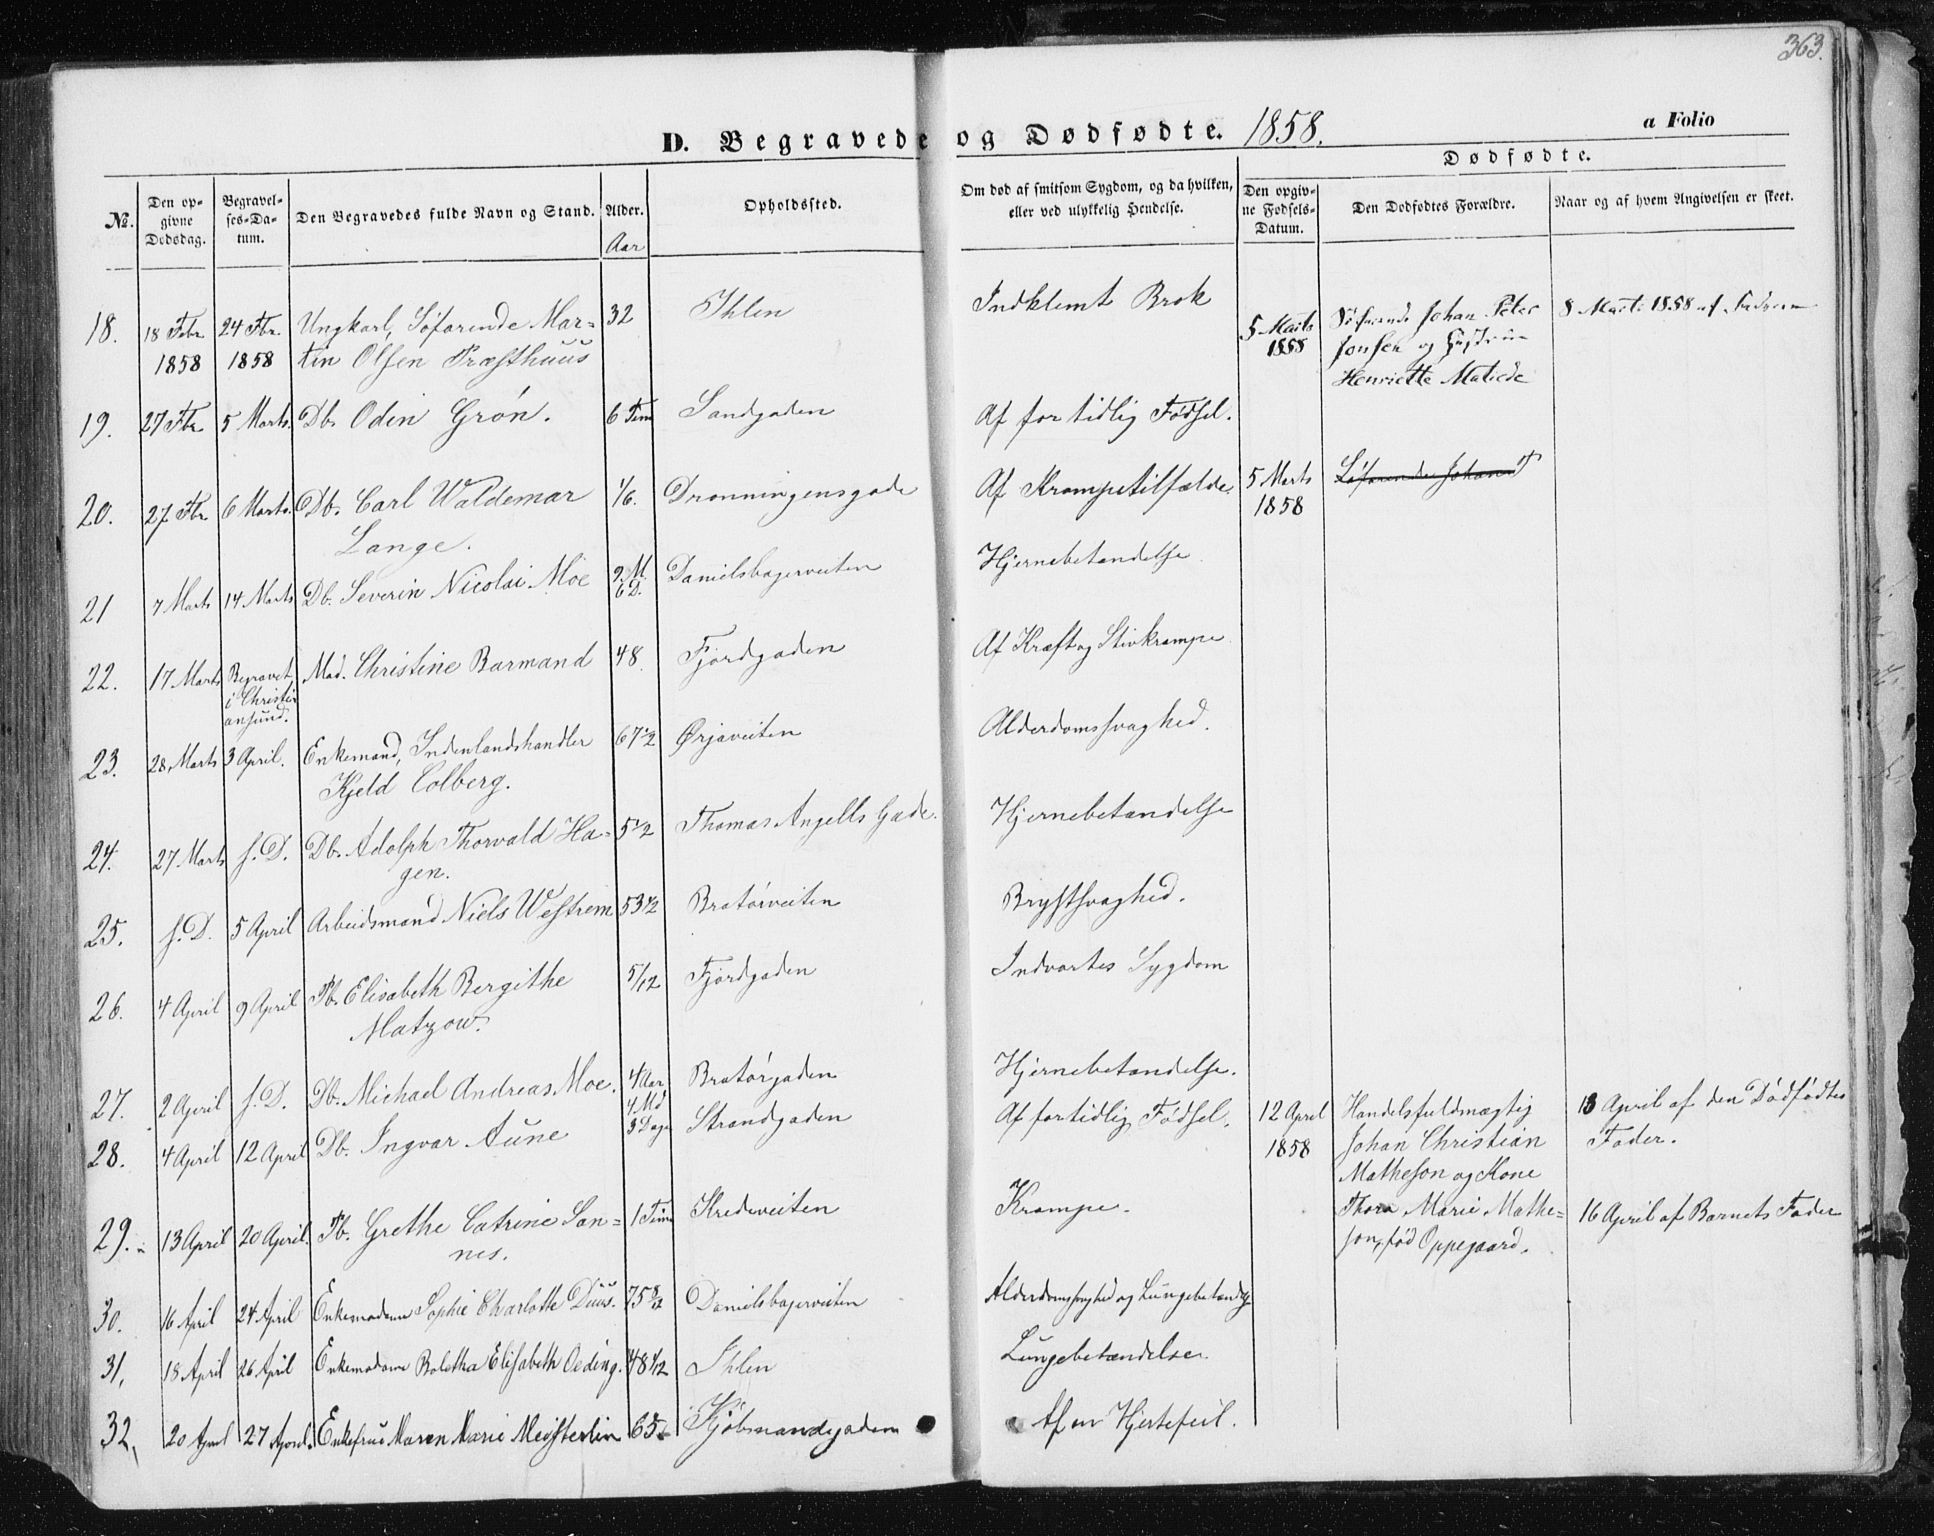 363.
D. Begravede og Dødfødte. 1858.
a Folio
No.
Den opgivne Dødsdag.
Begravelses-Datum.
Den Begravedes fulde Navn og Stand.
Alder.
Aar
Opholdssted.
Om død af smitsom Sygdom, og da hvilken, eller ved ulykkelig Hendelse.
Dødfødte.
Den opgivne Fødsels-Datum.
Den Dødfødtes Forældre.
Naar og af hvem Angivelsen er skeet.
18. 18 Febr 24 Fbr Ungkarl, Søfarende Mar= 32 Ihlen Indklemt Brok
1858 1858 tin Olsen Præsthuus
5 Marts 1858 Søfarende Johan Peter 8 Marts 1858 af
Jonsen og
Henriette
19. 27 Fbr 5 Marts. Db. Odin Grøn. 6 Tim Sandgaden Af for tidlig Fødsel.
20. 27 Fbr 6 Marts. Db. Carl Waldemar 1/6. Dronningensgade Af Krampetilfælde. 5 Marts Søfarende Johan
Lange. 1858
21 7 Marts 14 Marts Db. Severin Nicolai Moe 9 M. 6 D. Danielsbagerveiten Hjernebetændelse
22. 17 Marts Begravet i Christiansund. Mad. Christine Barmand 48. Fjordgaden Af Kræft og Stivkrampe
23. 28 Marts 3 April. Enkemand, Indenlandshandler 67 1/2 Ørjaveiten Alderdomssvaghed.
Kjeld Colberg.
24. 27 Marts s. D. Db. Adolph Thorvald Ha= 5 1/2 Thomas Angells Gade. Hjernebetændelse
gen.
25. s. D. 5 April Arbeidsmand Niels Westrem 53 1/2 Bratørveiten Brystsvaghed.
26. 4 April 9 April Pb. Elisabeth Bergithe 5/12 Fjordgaden Indvortes Sygdom
Matzow.
27. 2 April s. D. Db. Michael Andreas Moe. 4 Aar 4 Md 3 Dage Bratørgaden Hjernebetændelse.
28. 4 April 12 April Db. Ingvar Aune Strandgaden Af fortidlig Fødsel.
12 April 1858 Handelsfuldmægtig 13 April af den Dødfødtes
Johan Christian Fader.
Matheson og Kone
Thora Marie Mathe=
son, fød Oppegaard. 16 April af Barnets Fader
29. 13 April 20 April. Pb. Grethe Catrine San= 1 Time Krampe.
nes.
30. 16 April 24 April Enkemadame Sophie Charlotte Duus. 75 Danielsbagerveiten Alderdomssvaghed og Lungebetændelse
31. 18 April 26 April Enkemadame Boletha Elisabeth Oeding. 48 1/2 Ihlen Lungebetændelse
32. 20 April 27 April. Enkefrue Maren Marie Meisterlin 65 Kjøbmandgaden Af en Hjertefeil.